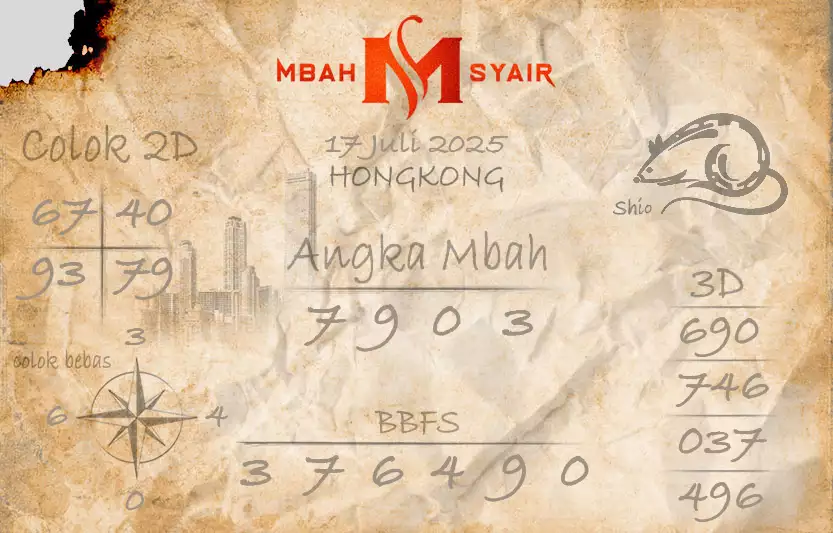 MBAH M SYAIR
17 Juli 2025
HONGKONG
Colok 2D
67 40
93 79
Shio
Angka Mbah
7 9 0 3
3D
690
746
037
496
colok bebas
3
6 4
0
BBFS
3 7 6 4 9 0